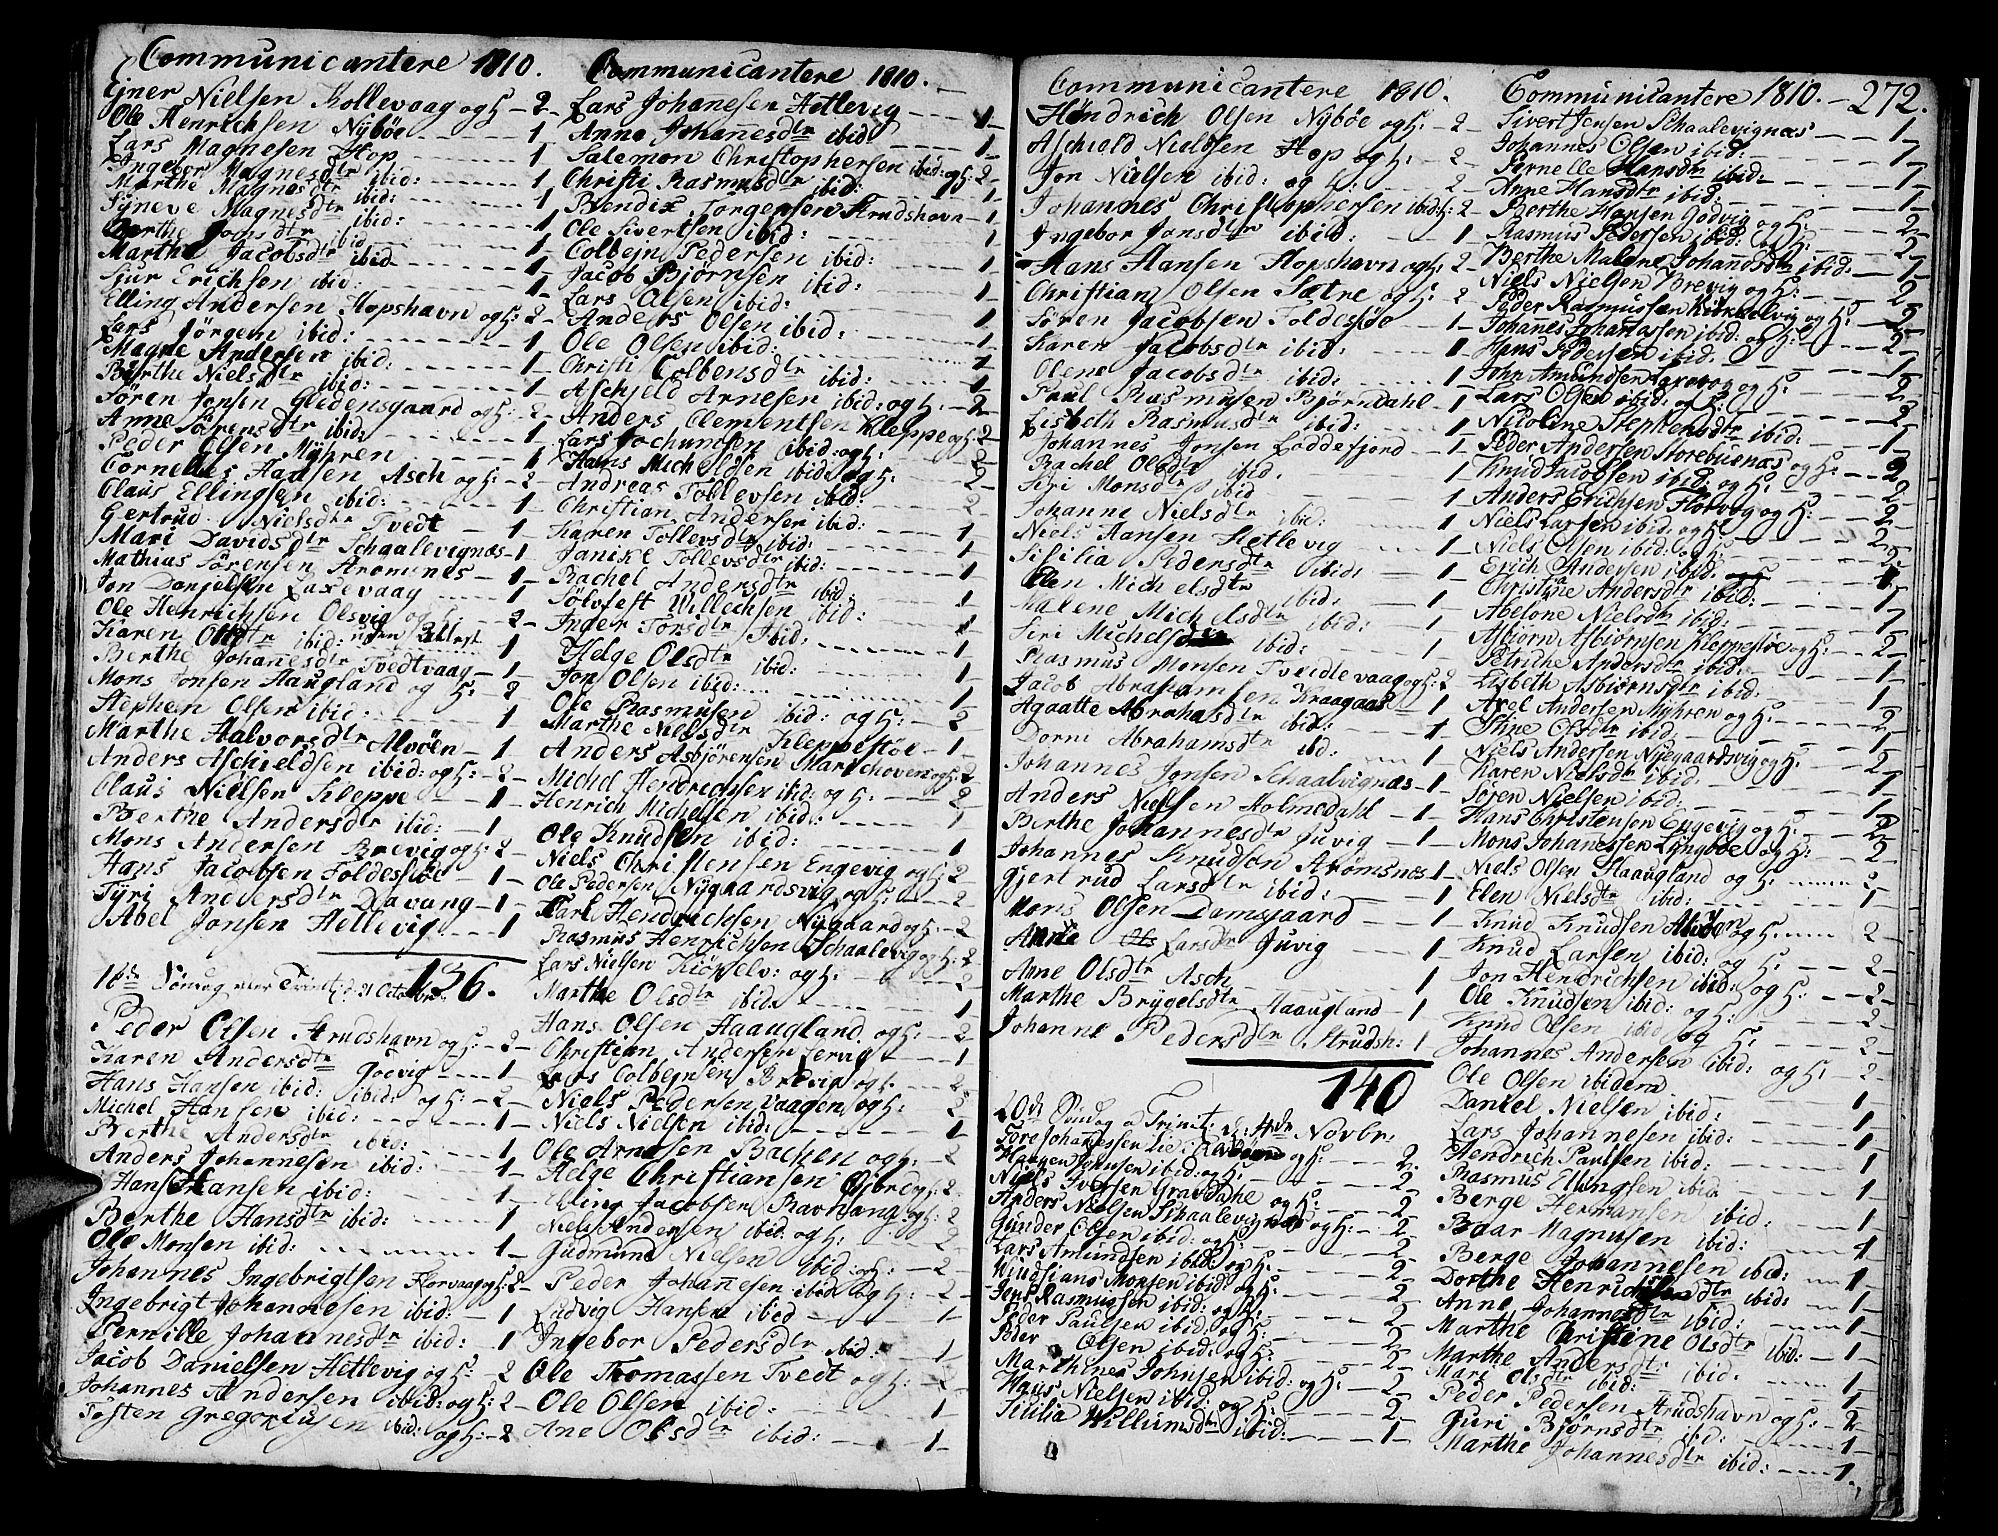 Communicantere 1810.
Ejner Nielsen Kollevaag og H: - 2
Ole Henrichsen Nybøe - 1
Lars Magnesen Hop - 1
Ingebor Magnesdtr ibid: - 1
Marthe Magnesdtr ibid: - 1
Synneve Magnesdtr ibid: - 1
Berthe Jonsdtr ibid - 1
Marthe Jacobsdtr ibid - 1
Siur Erichsen ibid: - 1
Elling Andersen Hopshavn og H: 2
Lars Jörgens ibid: - 1
Magne Andersen ibid: - 1
Berthe Nielsdtr ibid: - 1
Sören Jonsen Gledensgaard og H: 2
Anne Sörensdtr ibid: - 1
Peder Olsen Myhren - 1
Cornelius Hansen Asch og H: - 2
Claus Ellingsen ibid: - 1
Gertrud Nielsdtr Tvedt - 1
Mari Davidsdtr Schaalevignæs - 1
Mathias Sörensen Strömsnes - 1
Jon Danjelsen Laxevaag - 1
Ole Henrichsen Olsvig og H: - 2
Karen Olsdtr ibid:
Berthe Johanesdtr Tvedtvaag - 1
Mons Jonsen Haugland og H: - 2
Stephen Olsen ibid: - 1
Marthe Halvorsdtr Alvöen - 1
Anders Aschieldsen ibid: og H: - 2
Claus Nielsen Kleppe - 1
Berthe Andersdtr ibid: - 1
Mons Andersen Brevig og H: 2
Hans Jacobsen Foldessiøe - 1
Syri Andersdtr Davang - 1
Abel Jonsen Hetlevig - 1
136.
18de Söndag efter Trinit: d: 21 October
Peder Olsen Strudshavn og H: - 2
Karen Andersdtr Goevig - 1
Hans Hansen ibid: ibid: og H: - 2
Michel Hansen ibid: - 1
Berthe Andersdtr ibid: - 1
Anders Johannesen ibid: - 1
Hans Hansen ibid: - 1
Berthe Hansdtr ibid: - 1
Ole Monsen ibid: - 1
Johannes Ingebrigtsen Florvaag og H: 2
Ingebrigt Johannesen ibid: - 1
Pernille Johannesdtr ibid: 1
Jacob Danielsen Hetlevig og H: 2
Johannes Andersen ibid: og H: 2
Tosten Gregoriusen ibid: og H: - 2
Communicantere 1810.
Lars Johanesen Hetlevig - 1
Anne Johanesdtr ibid: - 1
Salemon Christophersen ibid: og H: 2
Christi Rasmusdtr ibid: - 1
Bendix Torgersen Strudshavn - 1
Ole Sivertsen ibid: - 1
Colbejn Pedersen ibid: - 1
Jacob Björnsen ibid: - 1
Lars Olsen ibid: - 1
Anders Olsen ibid: - 1
Ole Olsen ibid: - 1
Christi Colbensdtr ibid: - 1
Aschield Arnesen ibid: og H: - 2
Anders Clementsen Kleppe og H: 2
Lars Jochumsen ibid: og H: - 2
Hans Michelsen ibid: og H: - 2
Andreas Tollevsen ibid: - 2
Christian Andersen ibid: - 1
Karen Tollevsdtr ibid: - 1
Janike Tollevsdtr ibid: - 1
Rachel Andersdtr ibid: - 1
Sölvfest Willechsen ibid: - 1
Inger Torsdtr ibid: - 1
Helge Olsdtr ibid: - 1
Jon Olsen ibid: - 1
Ole Rasmusen ibid: og H: - 2
Marthe Nielsdtr Kleppestøe - 1
Anders Asbjörensen Marschoven og H: 2
Michel Hendrichsen ibid: og H: - 2
Henrich Michelsen ibid: - 1
Ole Knudsen ibid: - 1
Niels Christensen Engevig og H: 2
Ole Pedersen Nygaardsvig og H: - 2
Carl Hendrichsen Nygaard og H: - 2
Rasmus Henrichsen Schaalevig og H: 2
Lars Nielsen Kiöpelv: og H: - 2
Marthe Olsdtr ibid: - 1
Hans Olsen Haaugland og H: - 2
Christian Andersen Lervig - 1
Lars Colbejnsen Brevig og H: - 2
Niels Pedersen Vaagen og H: - 2
Niels Nielsen ibid: - 1
Ole Arnesen Bachen og H: - 2
Helge Christiansen og H: 2
Elling Jacobsen Ravnang og H: 2
Niels Andersen ibid: og H: - 2
Gudmund Nielsen ibid: og H: - 2
Peder Johanesen ibid og H: - 2
Ludvig Hansen ibid - 1
Ingebor Pedersdtr ibid: - 1
Ole Thomassen Tvedt og H: - 2
Ole Olsen ibid: - 1
Ane Olsdtr ibid: - 1
Communicantere 1810.
Hendrich Olsen Nybøe og H: - 2
Aschield Nielsen Hop og H: - 2
Jon Nielsen ibid: og H: - 2
Johannes Christophersen ibid: H: 2
Ingebor Jonsdtr ibid: - 1
Hans Hansen Hopshavn og H: 2
Christian Olsen Sætre og H: - 2
Sören Jacobsen Foldessiøe - 1
Karen Jacobsdtr ibid: - 1
Olene Jacobsdtr ibid: - 1
Poul Rasmusen Bjørndahl - 1
Lisbeth Rasmusdtr ibid: - 1
Johannes Jonsen Loddefjord - 1
Rachel Olsdtr ibid. - 1
Siri Monsdtr ibid - 1
Johanne Nielsdtr ibid: - 1
Niels Hansen Hetlevig - 1
Sisilia Pedersdtr ibid: - 1
Elen Michelsdtr ibid: - 1
Malene Michelsdtr ibid: - 1
Siri Michelsdtr ibid: - 1
Rasmus Monsen Tveidtevaag og H: 2
Jacob Abrahamsen Kraagaas - 1
Agaatte Abrahamsdtr ibid: - 1
Dorni Abrahamsdtr ibid: - 1
Johannes Jonsen Schaalvignæs - 1
Anders Nielsen Holmedahl - 1
Berthe Johannesdtr Juvig - 1
Johannes Knudsen Strømsnæs 1
Gjertrud Larsdtr ibid: - 1
Mons Olsen Damsgaard - 1
Anne Larsdtr Juvig - 1
Anne Olsdtr Asch - 1
Marthe Brygelsdtr Haaugland - 1
Johanne Pedersdtr Strudsh: 1
140
20de Söndag a Trinit: d: 4de Novbr:
Tore Johannessen og H: - 2
Haagen Johnsen ibid: og H: - 2
Niels Iversen Gravdahl og H: - 2
Anders Nielsen Skaalevignæs og H: - 2
Gunder Olsen ibid: og H: - 2
Lars Amundsen ibid: og H: - 2
Monsen ibid: og H: - 2
Jens Rasmussen ibid: og H: - 2
Peder Paulsen ibid: og H: - 2
Peder Olsen ibid: og H: - 2
Marthines Johnsen ibid: og H: - 2
Hans Nielsen ibid: og H: - 2
Sicilia Willumsdtr ibid: - 1
Communicantere 1810. - 272.
Sivert Jensen Schaalevignæs - 1
Johannes Olsen ibid: - 1
Pernelle Hansdtr ibid: - 1
Anne Hansdtr ibid: - 1
Berthe Hansen Godvig og H: - 2
Rasmus Pedersen ibid: og H: - 2
Berthe Malene Johannesdtr ibid: - 1
Niels Nielsen Brevig og H: - 2
Peder Rasmussen og H: - 2
Johanes Johanessen ibid: og H: - 2
Hans Pedersen ibid: - 1
John Amundsen Laxevog og H: - 2
Lars Olsen ibid: og H: - 2
Nicoline Stephensdtr ibid: - 1
Peder Andersen Storebuenæs og H: - 2
Knud Jacobsen ibid: og H: - 2
Anders Erichsen Florvog og H: - 2
Niels Larsen ibid: og H: - 2
Niels Olsen ibid: og H: - 2
Erich Andersen ibid: - 1
Christine Andersdtr ibid: - 1
Abelone Nielsdtr ibid: - 1
Asbiørn Asbiørnsen Kleppestøe og H: - 2
Petriche Andersdtr ibid: - 1
Lisbeth Asbiørnsdtr ibid: - 1
Axel Andersen Myhren og H: - 2
Stine Olsdtr ibid: - 1
Niels Andersen Nygaardsvig og H: - 2
Karen Nielsdtr ibid: - 1
Sören Nielsen ibid: - 1
Hans Christensen Engevig og H: - 2
Mons Johanessen Lyngbøe og H: - 2
Niels Olsen Haaugland og H: - 2
Elen Nielsdtr ibid: - 1
Knud Knudsen Alvöen og H: - 2
Knud Larsen ibid: og H: - 2
Jon Hendrichsen ibid: og H: - 2
Ole Knudsen ibid: og H: - 2
Knud Olsen ibid og H: - 2
Johannes Andersen ibid: og H: - 2
Ole Olsen ibidem - 1
Daniel Nielsen ibid: - 1
Lars Johannesen ibid: - 1
Hendrich Paulsen ibid: - 1
Rasmus Ellingsen ibid: - 1
Berge Hermansen ibid: - 1
Baar Magnusen ibid: - 1
Berge Johannesen ibid: - 1
Dorthe Henrichsdtr ibid: - 1
Anne Johannesdtr ibid: - 1
Marthe Christine Olsdtr ibid: - 1
Marthe Andersdtr ibid: - 1
Mari Olsdtr ibid: - 1
Peder Pedersen Strudshavn og H: - 2
Guri Bjørnsdtr ibid: - 1
Marthe Johannesdtr ibid: - 1.